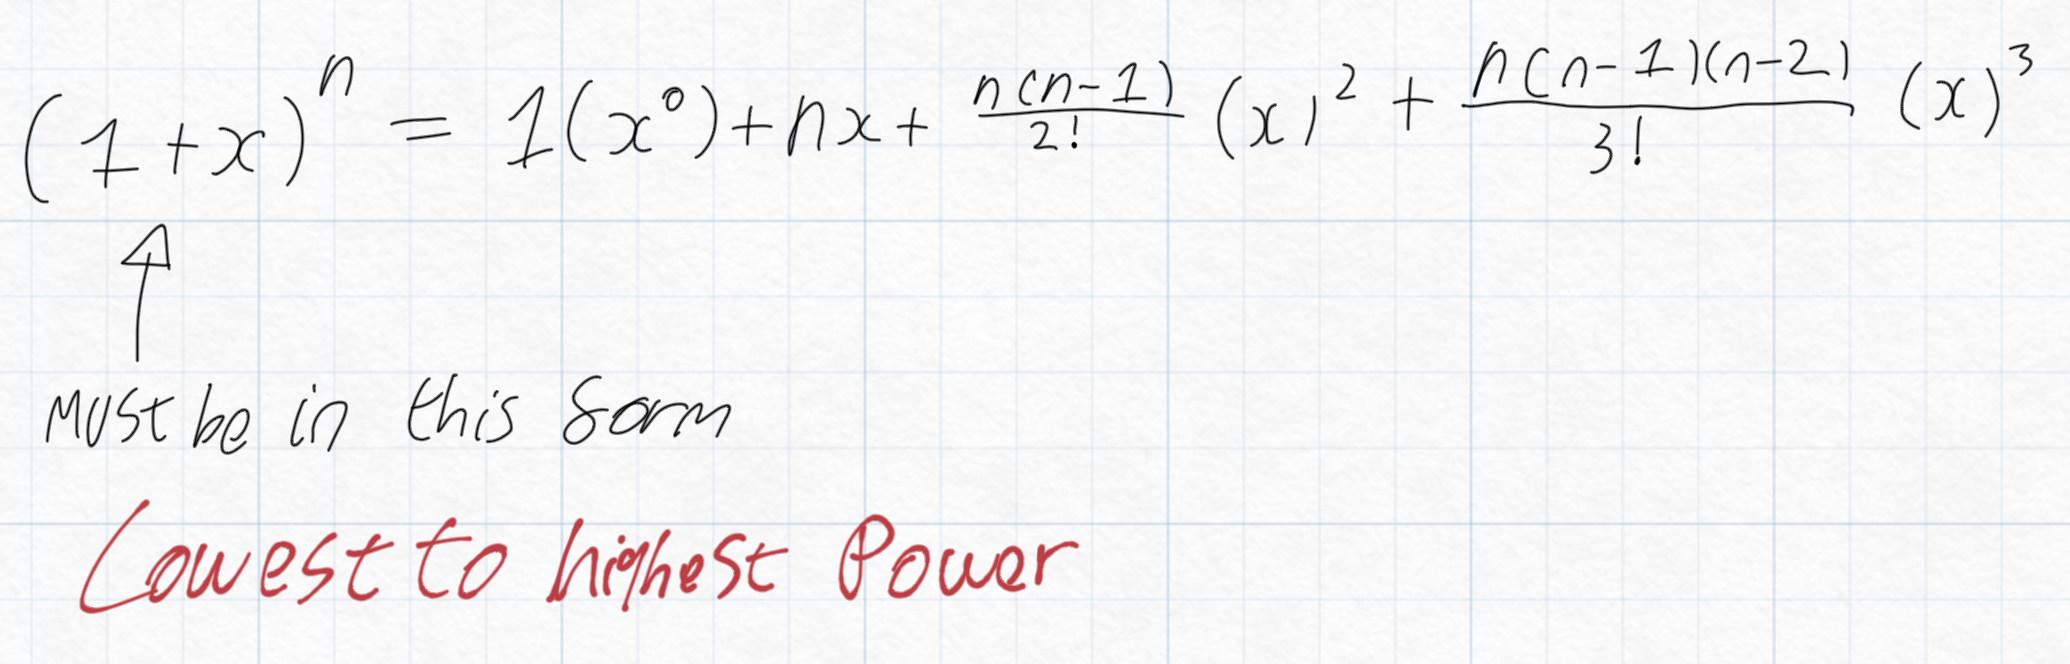 (1+x)^n = 1(x^0) + nx + n(n-1)/2! (x)^2 + n(n-1)(n-2)/3! (x)^3
must be in this form
Lowest to highest Power